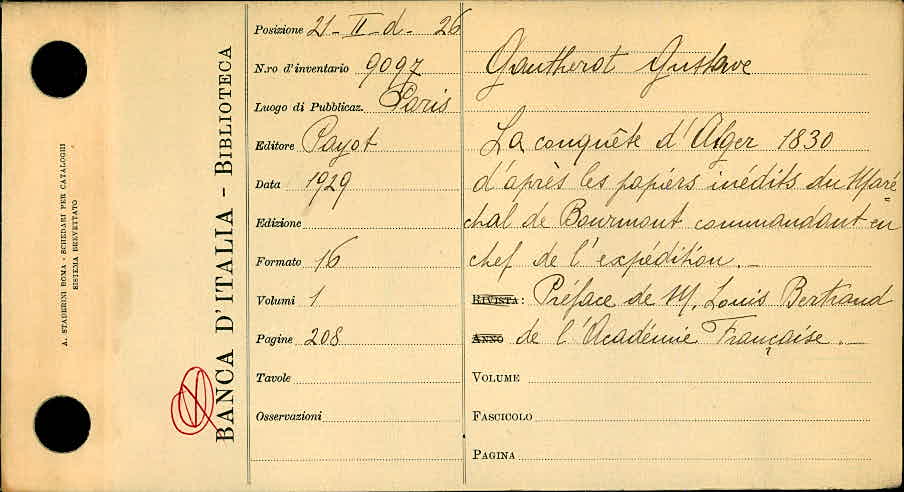 A. STADERINI ROMA - SCHEDARI PER CATALOGHI
SISTEMA BREVETTATO
BANCA D'ITALIA - BIBLIOTECA
Posizione 21 - II - d - 26
N.ro d'inventario 9097
Luogo di Pubblicaz. Paris
Editore Payot
Data 1929
Edizione
Formato 16
Volumi 1
Pagine 208
Tavole
Osservazioni
Gautherot Gustave
La conquête d'Alger 1830
d'après les papiers inédits du Maré-
chal de Bourmont commandant en
chef de l'expédition. -
RIVISTA: Préface de M. Louis Bertrand
ANNO de l'Académie Française. -
VOLUME
FASCICOLO
PAGINA